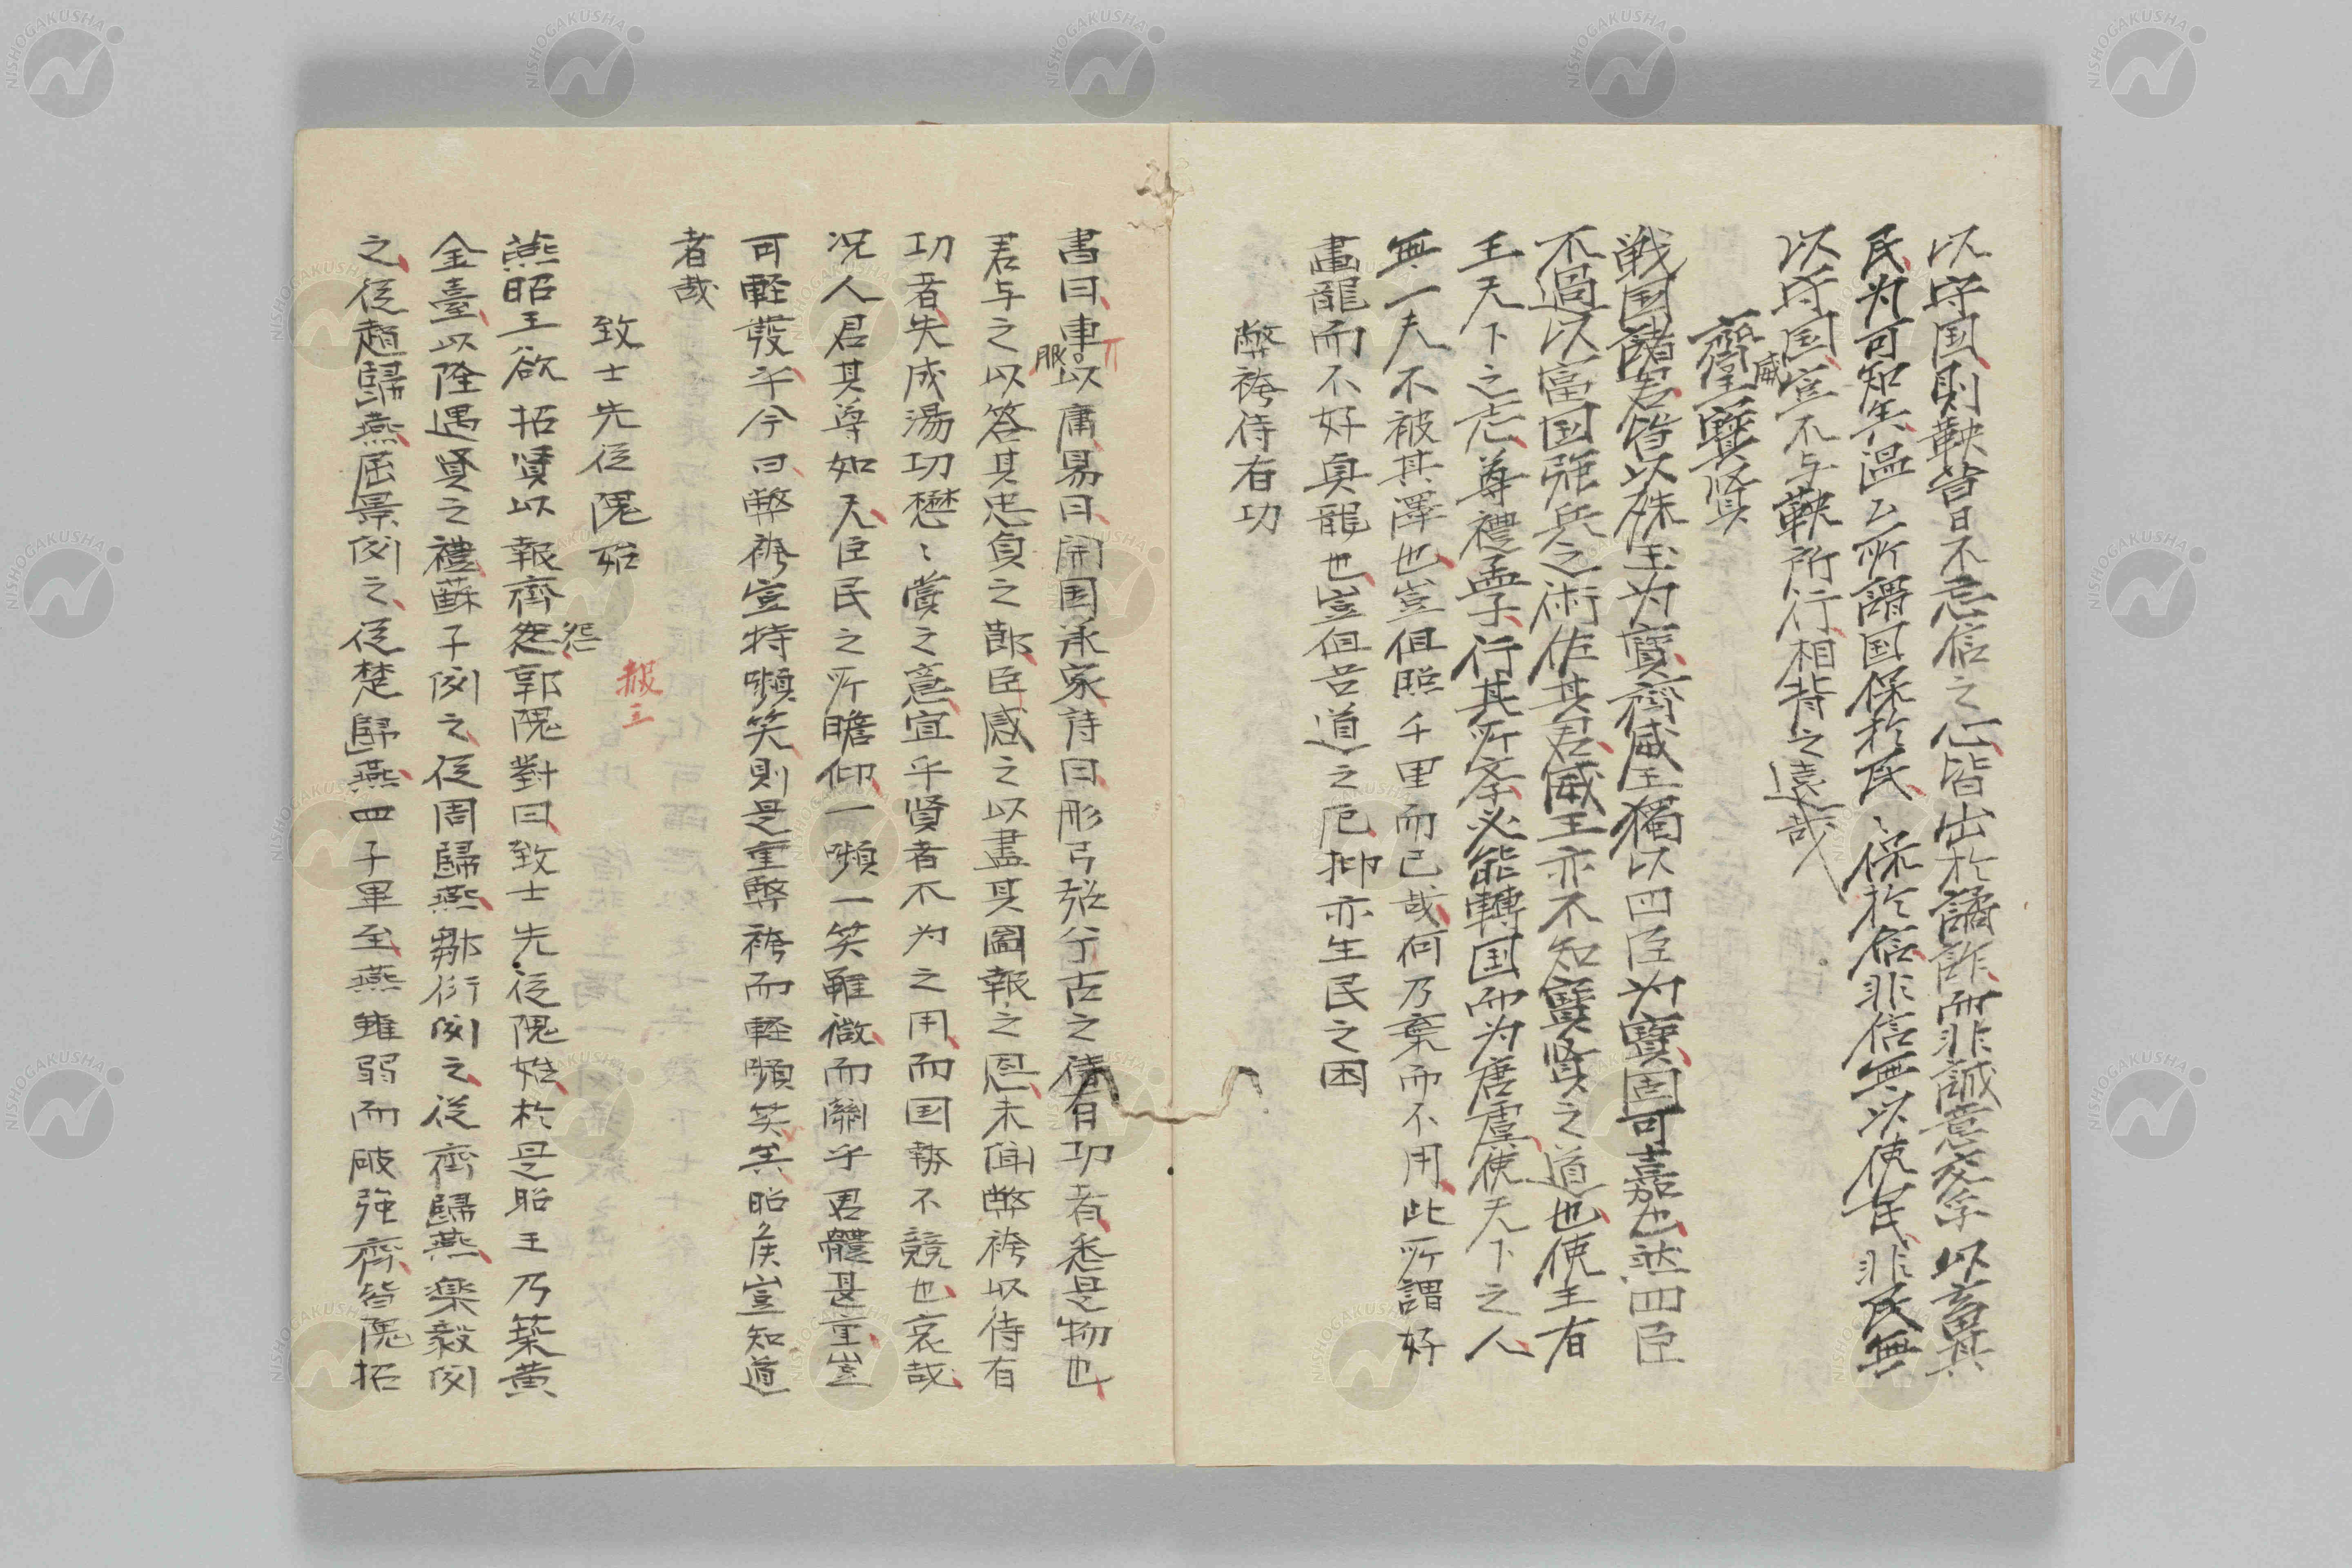 以守国則鞅昔日不忘信之心皆出於譎詐而非誠意矣字以畜其
民为可知矣温公所謂国保於民〻保於信非信無以使民非民無
以守国豈不与鞅所行相背之遠哉
齊威王寶賢
戦国諸君皆以殊玉为寶齊威王獨以四臣为寶固可嘉也然四臣
不過以富国強兵之術佐其君威王亦不知寶賢之道也使王有
王天下之志尊禮孟子行其所学必能轉国而为唐虞使天下之人
無一夫不被其澤也豈但照千里而已哉何乃棄而不用此所謂好
畫龍而不好真龍也豈但吾道之厄抑亦生民之困
弊袴待有功
書曰車服以庸易曰開国承家詩曰彤弓弨兮古之待有功者悉是物也
君与之以答其忠負之節臣感之以盡其圖報之恩未聞弊袴以待有
功者失成湯功懋〻賞之意宜乎賢者不为之用而国勢不競也哀哉
况人君其尊如天臣民之所瞻仰一嚬一笑雖微而關乎君體甚重豈
可軽發乎今曰弊袴豈特嚬笑則是重弊袴而軽嚬笑矣昭侯豈知道
者哉
致士先従隗始
燕昭王欲招賢以報齊怨郭隗對曰致士先従隗始於是昭王乃築黄
金臺以隆遇賢之禮蘇子聞之従周歸燕鄒衍聞之従齊歸燕樂毅聞
之従趙歸燕屈景聞之従楚歸燕四子畢至燕雖弱而破強齊皆隗招
怨
報三